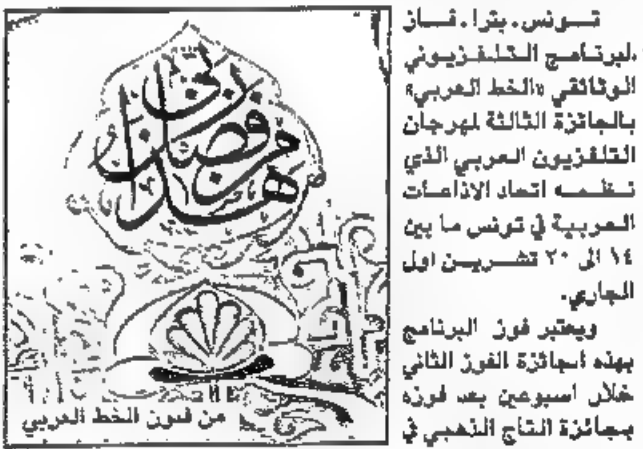 تـونس ـ بترا ـ فـاز
البرنامج التلفزيوني
الوثائقي «الخط العربي»
بالجائزة الثالثة لمهرجان
التلفزيون العربي الذي
تنظمه اتحاد الاذاعات
العربية في تونس ما بين
١٤ الى ٢٠ تشرين اول
الجاري.
ويعتبر فوز البرنامج
بهذه الجائزة الفوز الثاني
خلال اسبوعين بعد فوزه
بجائزة التاج الذهبي في
هذا من فضل ربي
من فنون الخط العربي